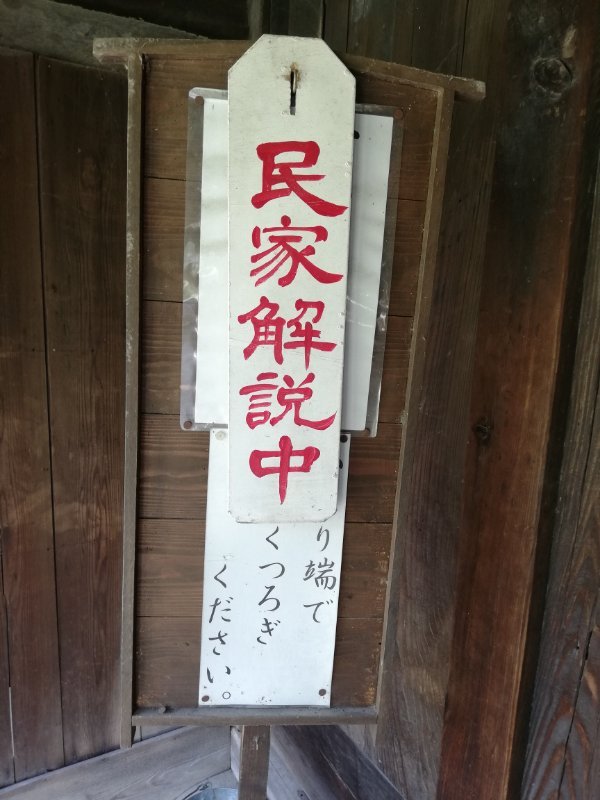 民家解説中
り端で
くつろぎ
ください。